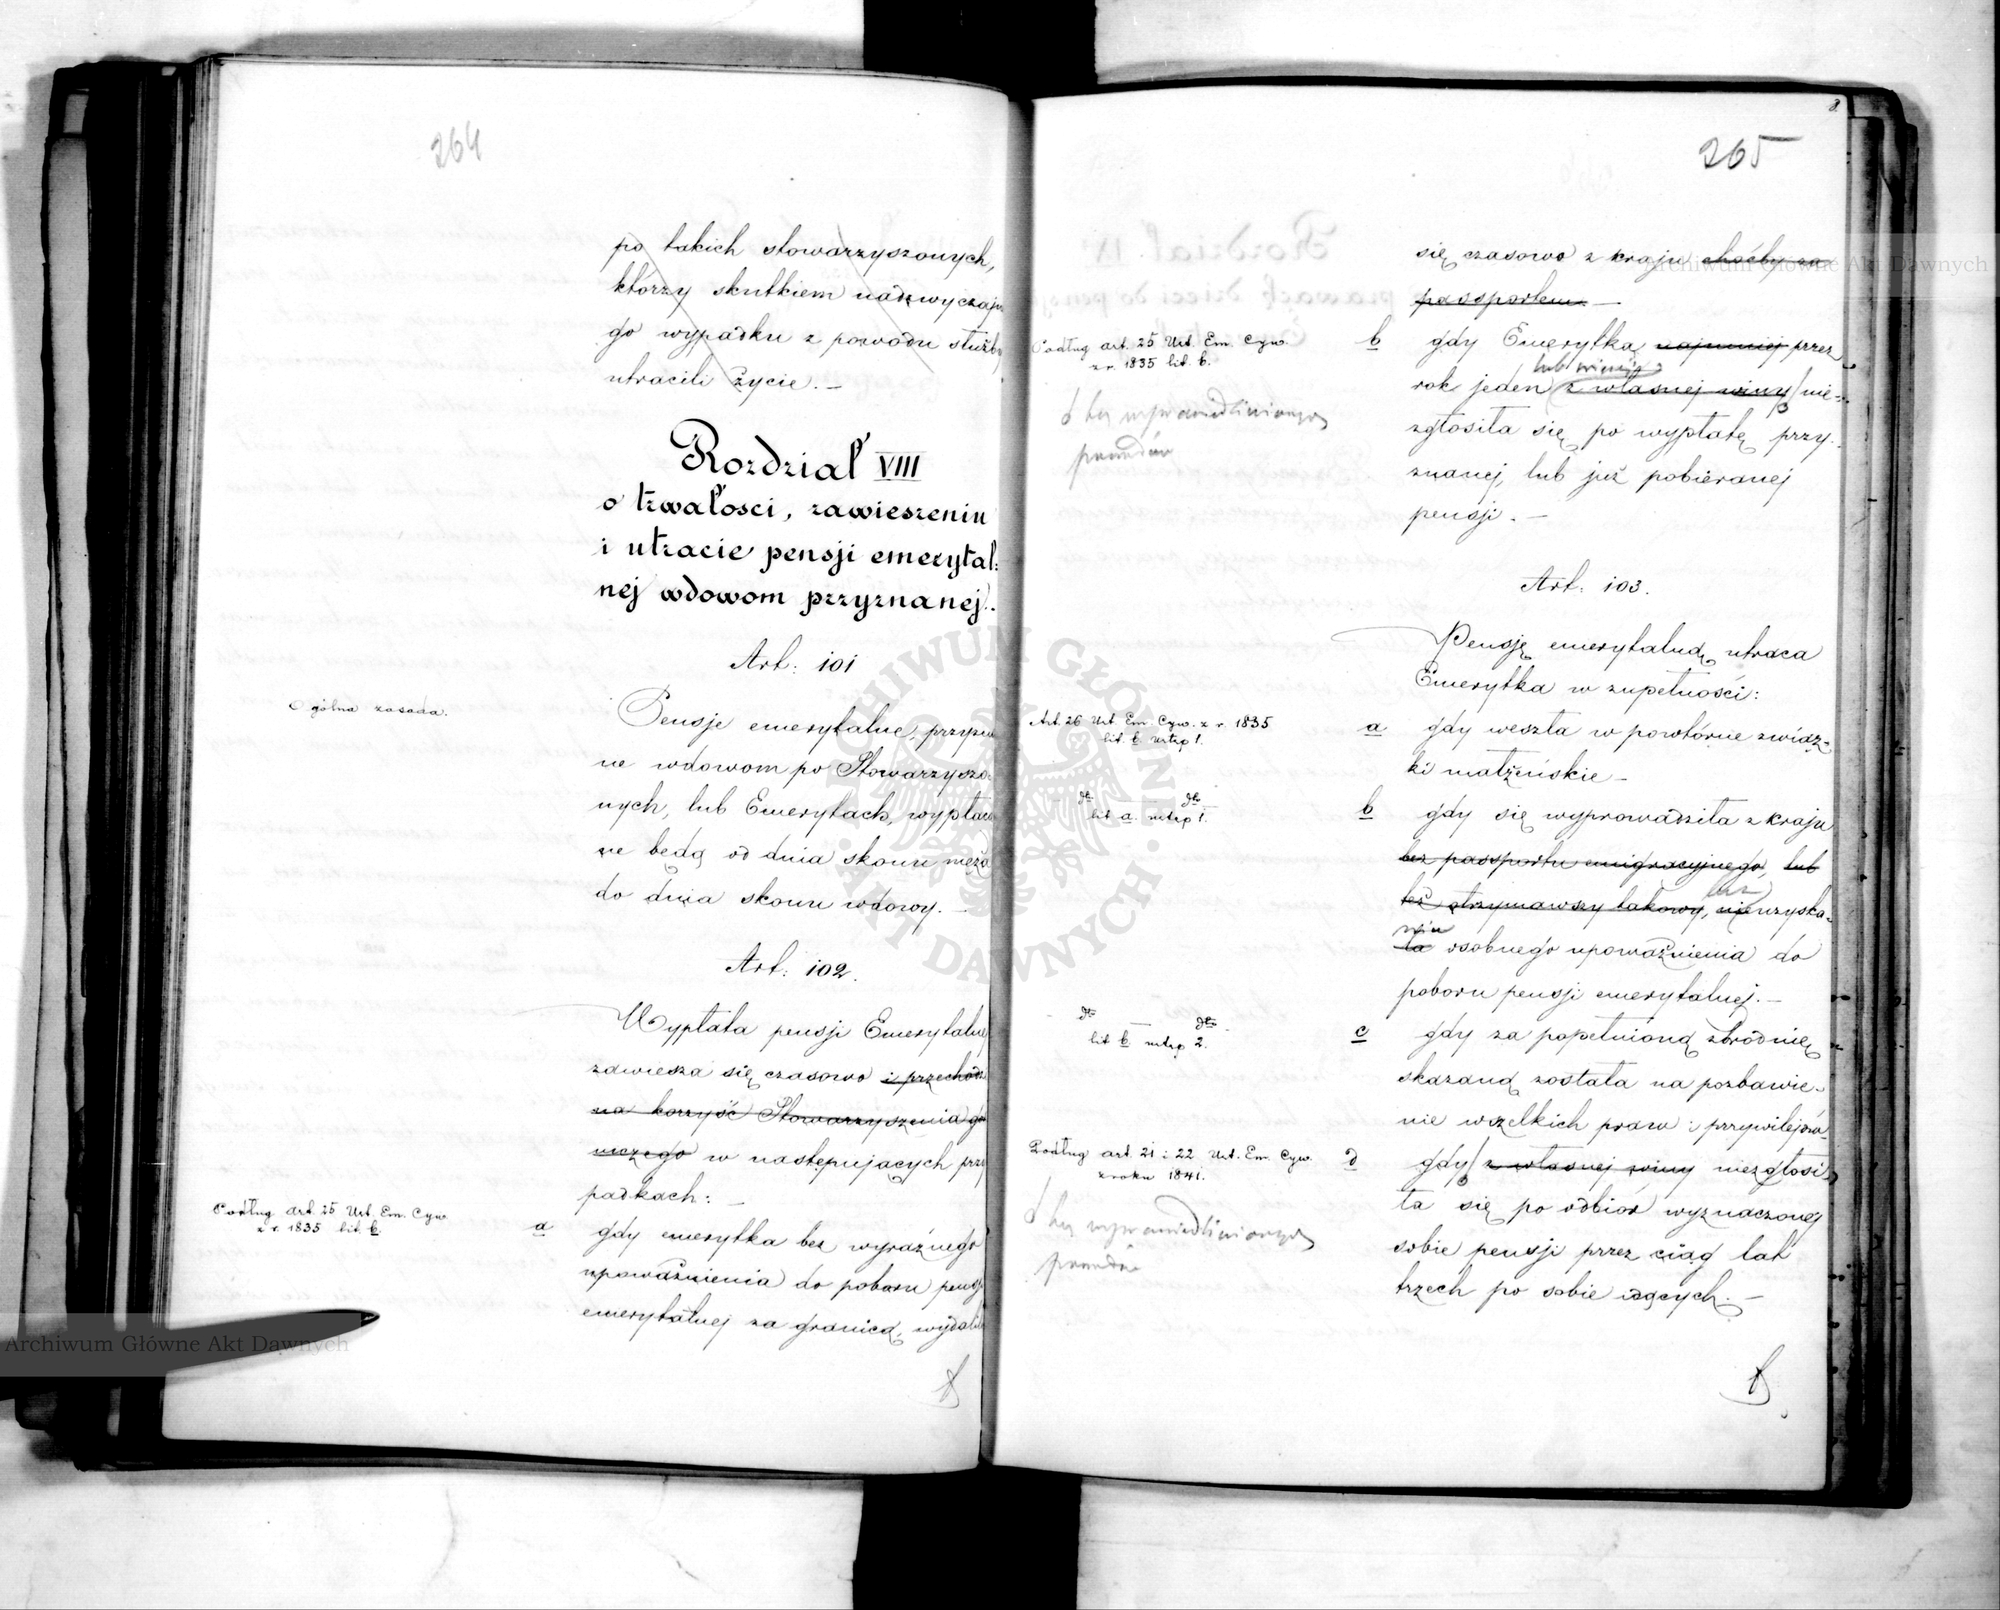 264
po takich stowarzyszonych,
którzy skutkiem nadzwyczajne
go wypadku z powodu służby
utracili życie. —
Rozdział VIII
o trwałosci, zawieszeniu
i utracie pensji emerytal:
nej wdowom przyznanej.
Art: 101
Ogólna zasada.
Pensje emerytalne, przyzna
ne wdowom po Stowarzyszo:
nych, lub Emerytach, wypłaca
ne będą od dnia skonu męża
do dnia skonu wdowy. —
Art: 102.
Wypłata pensji Emerytalnej
zawiesza się czasowo i przechodzi
na korzyść Stowarzyszenia gór
niczego w następujących przy
padkach: —
Podług art. 25 Ust. Em. Cyw.
z r. 1835 lit. b.
a gdy emerytka bez wyraźnego
upoważnienia do poboru pensji
emerytalnej za granicą, wydaliła
265
się czasowo z kraju choćby za
passportem —
Podług art. 25 Ust. Em. Cyw.
z r. 1835 lit. b.
b gdy Emerytka najmniej przez
lub więcej
rok jeden z własnej winy nie=
bez usprawiedliwionych
powodów
zgłosiła się po wypłatę przy=
znanej, lub już pobieranej
pensji. —
Art: 103.
Pensję emerytalną utraca
Emerytka w zupełności:
Art. 26 Ust. Em. Cyw. z r. 1835
lit. b. ustęp 1.
a gdy weszła w powtórne związ=
ki małżeńskie —
dto dto
lit a. ustęp 1.
b gdy się wyprowadziła z kraju
bez passportu emigracyjnego, lub
też otrzymawszy takowy, nie uzyska=
bez
nia
ła osobnego upoważnienia do
poboru pensji emerytalnej. —
dto dto
lit b ustęp 2.
c gdy za popełnioną zbrodnię
skazaną została na pozbawie=
nie wszelkich praw i przywilejów
Podług art. 21 i 22 Ust. Em. Cyw.
z roku 1841.
d gdy z własnej winy niezgłosi=
bez usprawiedliwionych
powodów
ła się po odbiór wyznaczonej
sobie pensji przez ciąg lat
trzech po sobie idących. —
Archiwum Główne Akt Dawnych
Archiwum Główne Akt Dawnych
ARCHIWUM GŁÓWNE
AKT DAWNYCH